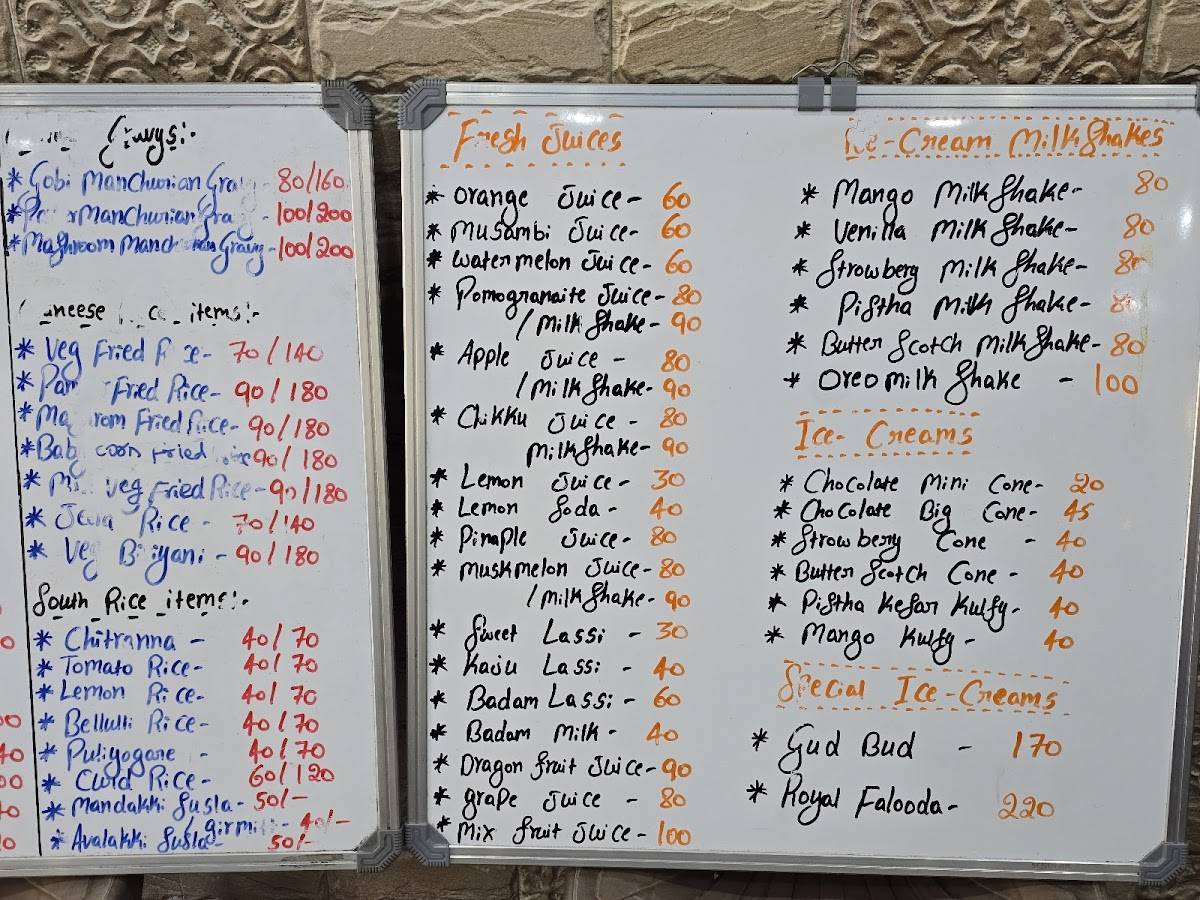 Gravys:-
* Gobi Manchurian Gravy - 80/160
Manchurian Gra - 100/200
* Mashroom Manchurian Gravy - 100/200
items:-
* Veg Fried - 70/140
* Fried Rice - 90/180
* Fried Rice - 90/180
* Baby corn Fried 90/180
* veg Fried Rice - 90/180
* Jeera Rice - 70/140
* Veg Biriyani - 90/180
South Rice items:-
* Chitranna - 40/70
* Tomato Rice - 40/70
* Lemon Rice - 40/70
* Bellulli Rice - 40/70
* Puliyogare - 40/70
* Curd Rice - 60/120
* Mandakki Susla - 50/-
/ girmit - 40/-
* Avalakki Susla - 50/-
Fresh Juices
* Orange Juice - 60
* Musambi Juice - 60
* Watermelon Juice - 60
* Pomogranaite Juice - 80
/ Milk Shake - 90
* Apple Juice - 80
/ Milk Shake - 90
* Chikku Juice - 80
Milk Shake - 90
* Lemon Juice - 30
* Lemon Soda - 40
* Pinaple Juice - 80
* Muskmelon Juice - 80
/ Milk Shake - 90
* Sweet Lassi - 30
* Kaju Lassi - 40
* Badam Lassi - 60
* Badam Milk - 40
* Dragon fruit Juice - 90
* grape Juice - 80
* Mix fruit Juice - 100
Ice-Cream MilkShakes
* Mango MilkShake - 80
* Venilla MilkShake - 80
* Strowberg Milk Shake - 80
* Pistha Milk Shake - 80
* Butter Scotch MilkShake - 80
* Oreo milk Shake - 100
Ice- Creams
* Chocolate Mini Cone - 20
* Chocolate Big Cone - 45
* Strowberry Cone - 40
* Butter Scotch Cone - 40
* Pistha Kesar Kulfy - 40
* Mango Kulfy - 40
Special Ice-Creams
* Gud Bud - 170
* Royal Falooda - 220